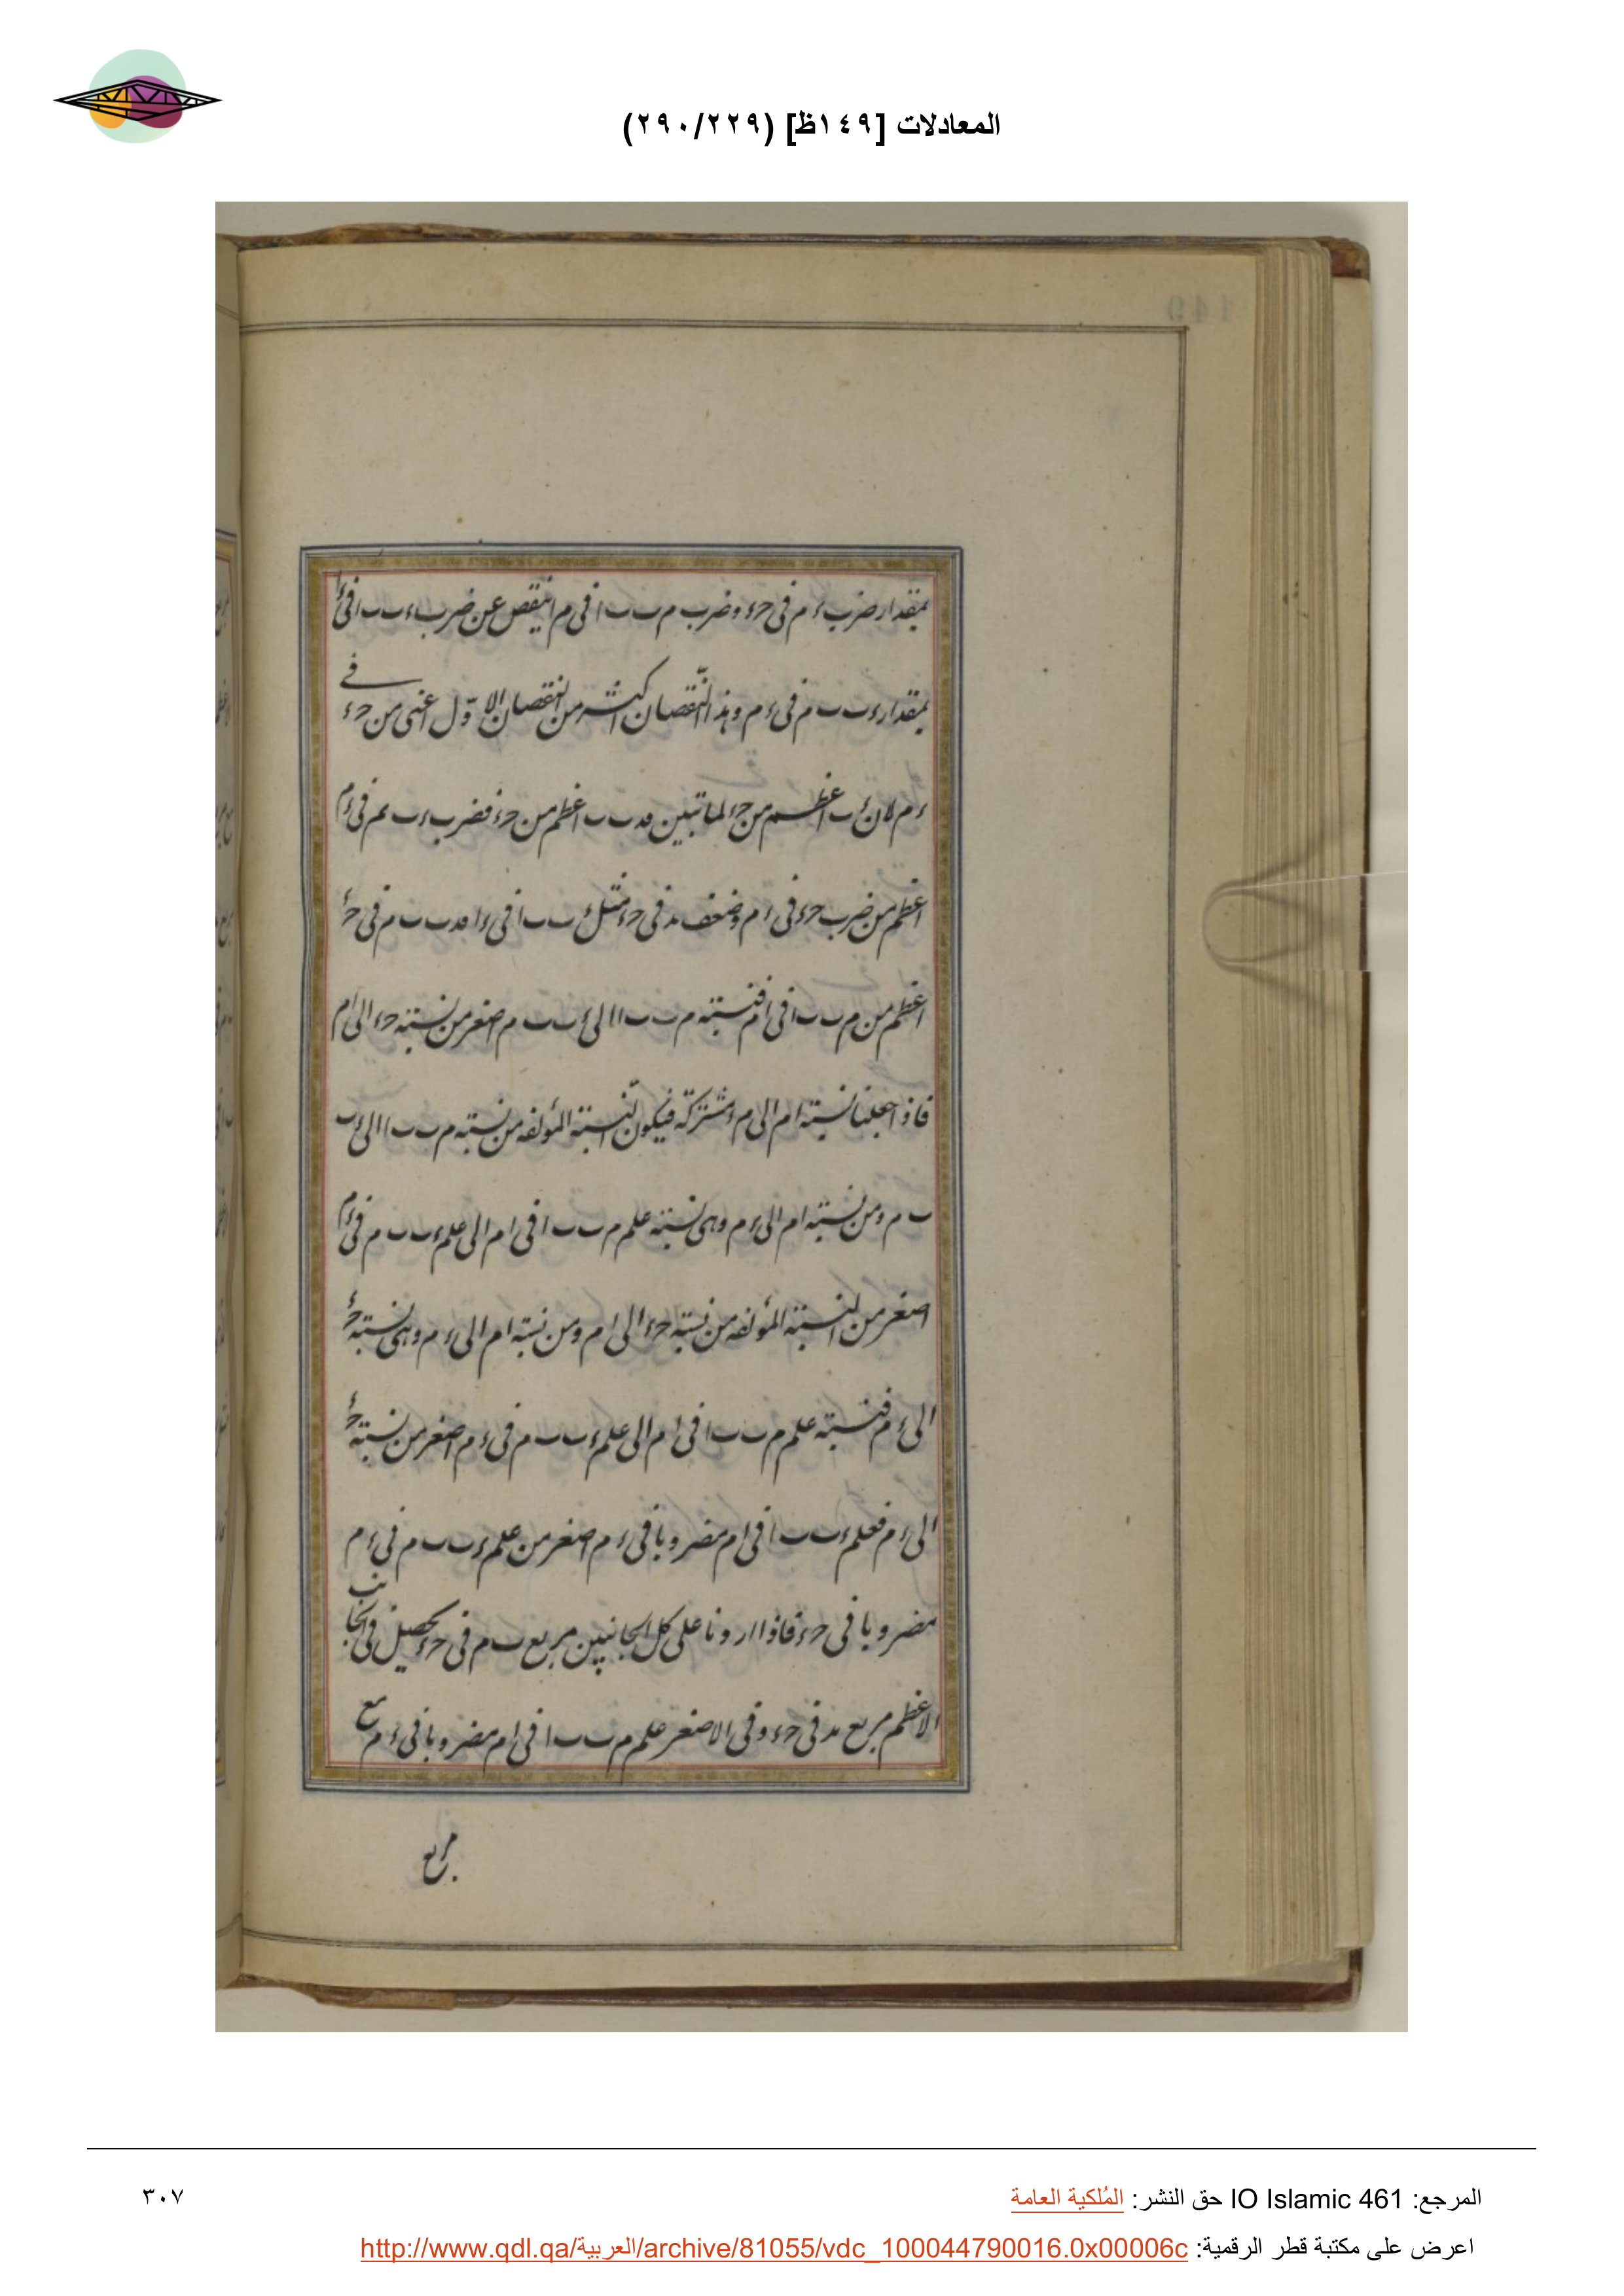 المعادلات [١٤٩ظ] (٢٩٠/٢٢٩)
بمقدار ضرب ء م فى حء وضرب م ب ب ا فى م ا ينقص عن ضرب ء ب ب ا فى ء ا
بمقدار ء ب ب م فى ء م وهذا النّقصان اكثر من النقصان الاوّل اعنى من حء فے
ء م لان ء ب اعظم من حء لما تبين ب ب اعظم من حء فضرب ء ب م فى ء م
اعظم من ضرب حء فى ء م وضعف مد فى حء مثل ء ب ب ا فى ء ا ب ب م فى حء
اعظم من م ب ب ا فى ام فنسبته م ب ب ا الى ء ب ب م اصغر من نسبته حء الى ام
فاذا جعلنا نسبته ام الى م ء مشتركة فيكون النسبتة المؤلفه من نسبته م ب ب ا الى ء ب
ب م ومن نسبته ام الى ء م وهى نسبته علم م ب ب ا فى ام الى علم ء ب ب م فى ء م
اصغر من النسبتة المؤلفه من نسبته حء الى ام ومن نسبته ام الى ء م وهى نسبته حء
الى ء م فنسبته علم م ب ب ا فى ام الى علم ء ب ب م فى ء م اصغر من نسبته حء
الى ء م فعلم ء ب ب ا فى ام مضروبا فى ء م اصغر من علم ء ب ب م فى ء م
مضروبا فى حء فاذا ازدنا على كل الجانبين مربع ب م فى حء يحصل فى الجانب
الاعظم مربع مد فى حء وفى الاصغر علم م ب ب ا فى ام مضروبا فى ء م مع
مربع
المرجع: IO Islamic 461 حق النشر: المُلكية العامة
٣٠٧
اعرض على مكتبة قطر الرقمية: http://www.qdl.qa/العربية/archive/81055/vdc_100044790016.0x00006c